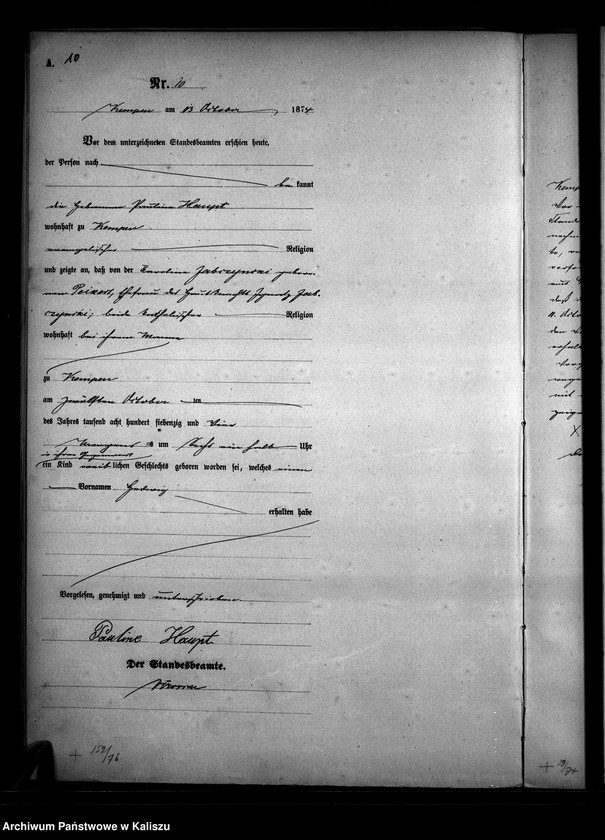 A. 10
Nr. 10
Kempen am 13 October 1874
Vor dem unterzeichneten Standesbeamten erschien heute,
der Person nach
be kannt
die Hebamme Pauline Haupt
wohnhaft zu Kempen
evangelischer Religion
und zeigte an, daß von der Karolina Jabczynski gebore
nen Peixert, Ehefrau des Haushälters Ignatz Jab
czynski, beide katholischer Religion
wohnhaft bei ihrem Manne
zu Kempen
am zwölften October ten
des Jahres tausend acht hundert siebenzig und vier
Morgens um sechs ein halb Uhr
in ihrer Gegenwart
ein Kind weiblichen Geschlechts geboren worden sei, welches einen
Vornamen Hedwig
erhalten habe
Vorgelesen, genehmigt und unterschrieben
Pauline Haupt
Der Standesbeamte.
+ 152/76
+ 19/74
Archiwum Państwowe w Kaliszu